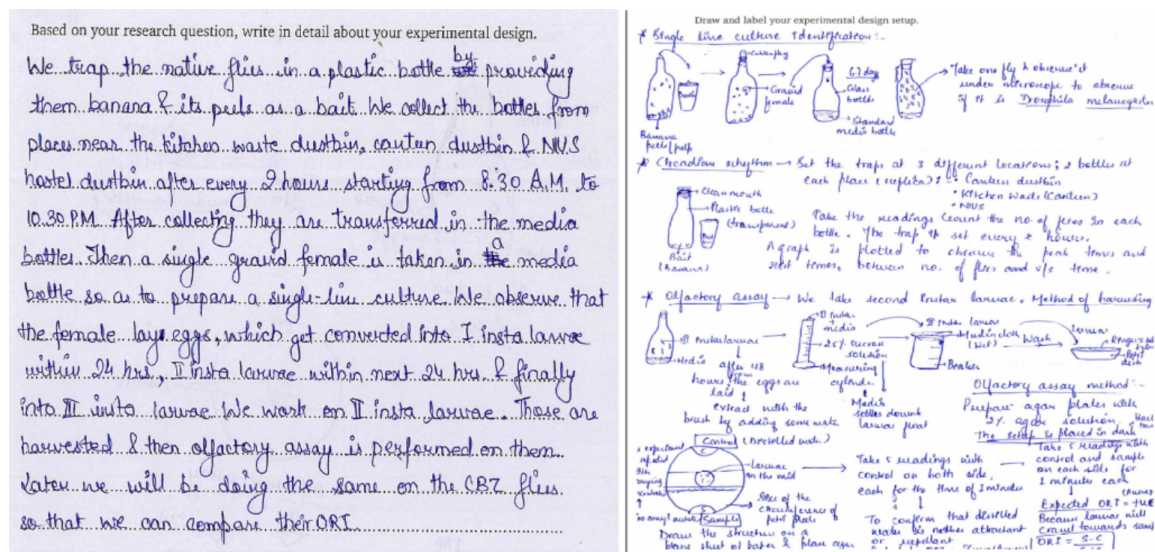 Based on your research question, write in detail about your experimental design.
We trap the native flies in a plastic bottle by providing
them banana & its peels as a bait. We collect the bottles from
places near the kitchen waste dustbin, canteen dustbin & NVS
hostel dustbin after every 2 hours starting from 8:30 A.M. to
10.30 P.M. After collecting they are transferred in the media
bottles. Then a single gravid female is taken in a media
bottle so as to prepare a single-line culture. We observe that
the female lays eggs, which get converted into I insta larvae
within 24 hrs, II insta larvae within next 24 hrs. & finally
into III insta larvae. We work on II insta larvae. Those are
harvested & then olfactory assay is performed on them.
Later we will be doing the same on the CBZ flies
so that we can compare their ORI.
Draw and label your experimental design setup.
* Single line culture Identification:-
Gravid
female
6-7 days
Glass
bottle
Standard
media bottle
Banana
peels/pulp
Take one fly & observe it
under microscope to observe
if it is Drosophila melanogaster
* Circadian rhythm → Set the traps at 3 different locations; 2 bottles at
each place (replica) :- • Canteen dustbin
• Kitchen Waste (Canteen)
• NVS
Clean mouth
Plastic bottle
(transparent)
Bait
(Banana)
Take the readings (count the no. of flies in each
bottle. The trap is set every 2 hours.
A graph is plotted to observe the peak times and
rest times, between no. of flies and v/s time.
* Olfactory assay → We take second Instar larvae. Method of harvesting
II Instar larvae
Media
after 48
hours the eggs are
laid
extract with the
brush by adding some water
II Instar
media
25% sucrose
solution
Measuring
cylinder
Media
settles down &
larvae float
II Instar larvae
Muslin cloth
(Wet)
Wash
Beaker
larvae
Petri
dish
Olfactory assay method:-
Prepare agar plates with
2% agar solution
The setup is placed in dark
Control (Distilled water)
larvae
in the mid
Size of the
circumference of
petri plate
Sample
Draw the structure on a
blank sheet of paper & place agar
Take 5 readings with
control on both side,
each for the time of 1 minutes
To confirm that distilled
water is neither attractant
or repellant
Take 5 readings with
control and sample
on each side for
1 minute each
Expected ORI = +ve
Because larvae will
crawl towards
ORI = S-C